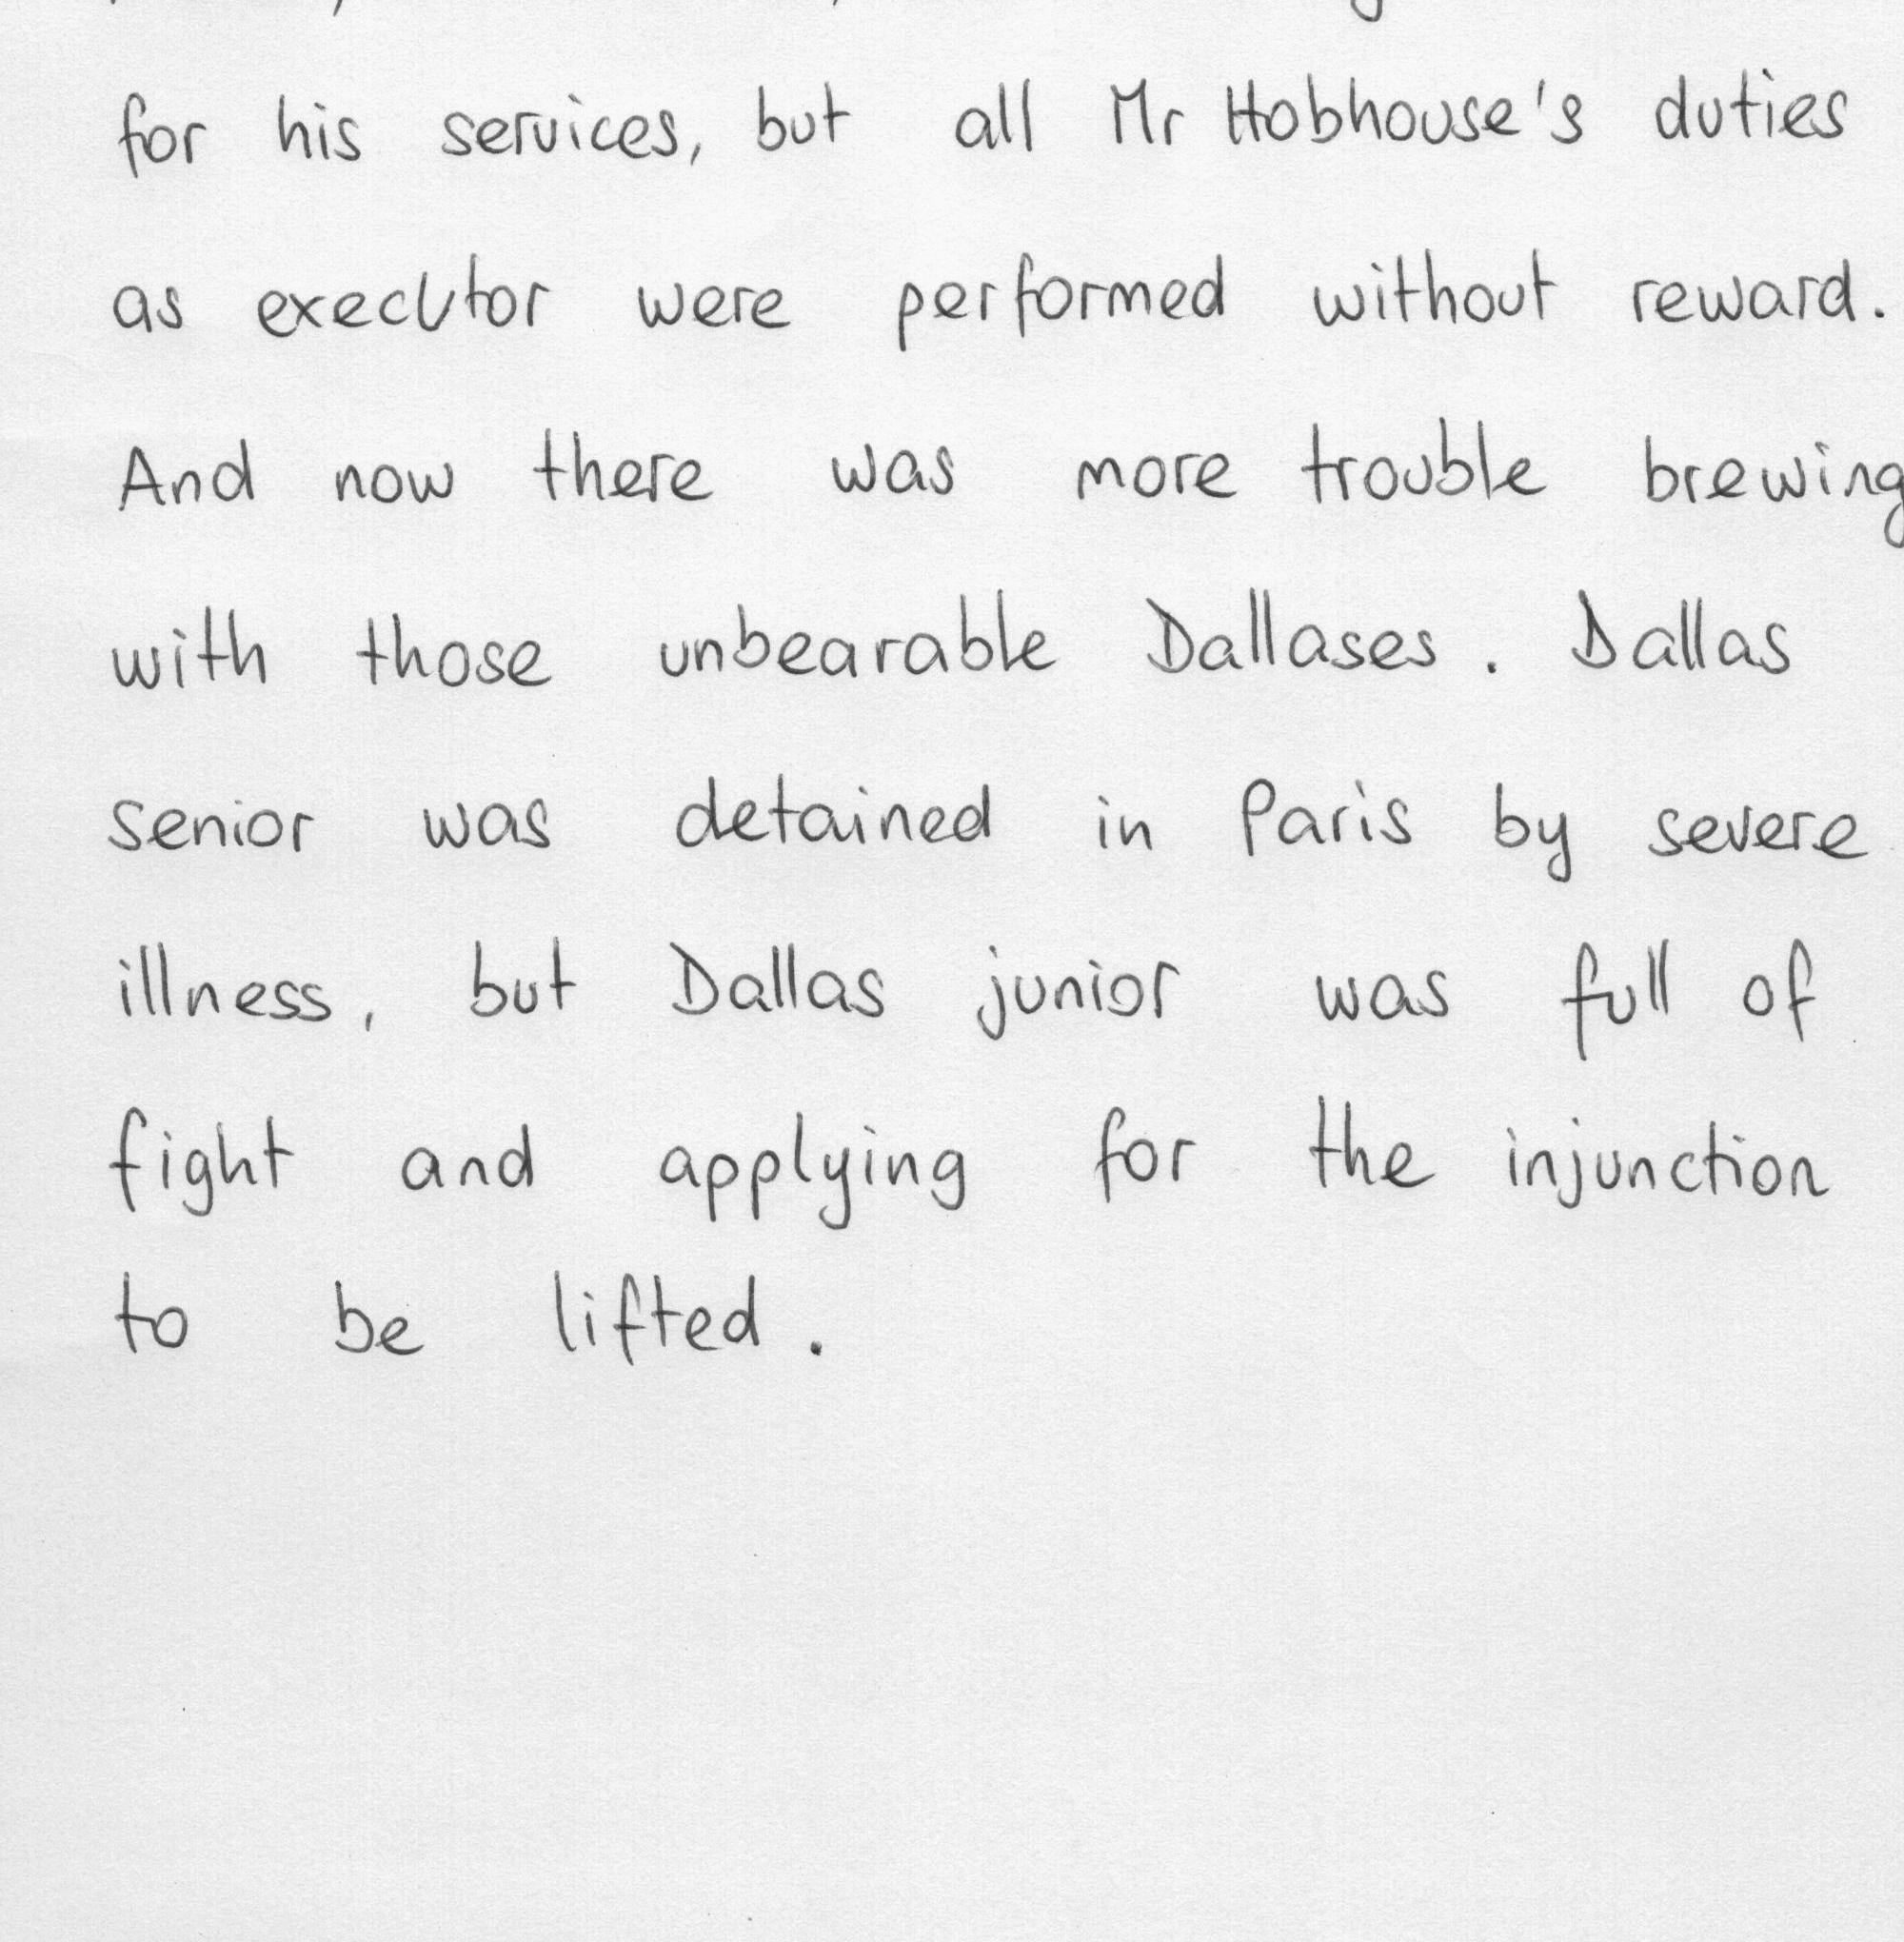 for his services, but all Mr Hobhouse's duties
as executor were performed without reward.
And now there was more trouble brewing
with those unbearable Dallases. Dallas
senior was detained in Paris by severe
illness, but Dallas junior was full of
fight and applying for the injunction
to be lifted.